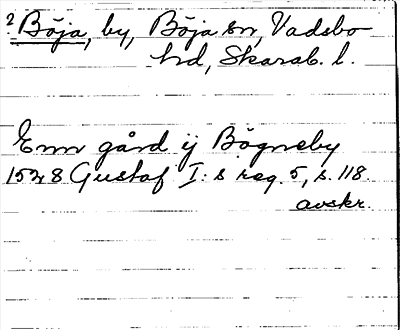 2 Böja, by, Böja sn, Vadsbo
hd, Skarab. l.
Enn gård ij Bögneby
1528 Gustaf I:s reg. 5, s. 118.
avskr.